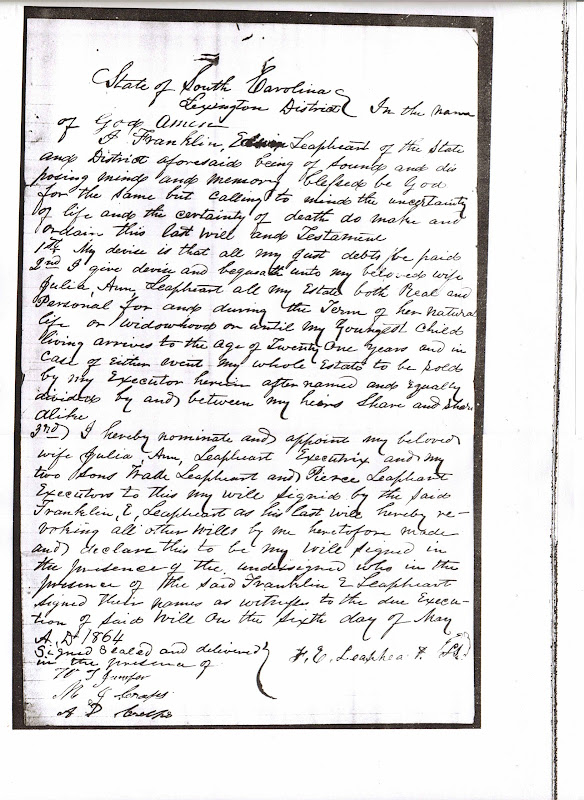 State of South Carolina
Lexington District In the name
of God Amen
I Franklin, Edwin Leapheart of the State
and District aforesaid being of Sound and dis
posing mind and memory blessed be God
for the same but Calling to mind the uncertainty
of life and the certainty of death do make and
ordain this last will and Testament
1st My devise is that all my Just debts be paid
2nd I give devise and bequeath unto my beloved wife
Julia, Ann, Leapheart all my Estate both Real and
Personal for and during the Term of her natural
life or widowhood or until my Youngest Child
living arrives to the age of Twenty One Years and in
Case of Either event my whole Estate to be sold
by my Executor herein after named and Equally
divided by and between my heirs Share and Share
alike
3rd I hereby nominate and appoint my beloved
wife Julia, Ann, Leapheart Executrix and my
two Sons Wade Leapheart and Pierce Leapheart
Executors to this my will signed by the said
Franklin, E, Leapheart as his last will hereby re-
voking all other wills by me heretofore made
and declare this to be my will signed in
the presence of the undersigned who in the
presence of the said Franklin E Leapheart
signed their names as witness to the due Execu-
tion of said will On the Sixth day of May
A, D 1864
Signed Sealed and delivered
in the presence of
F. E. Leapheart
W J
M J Craps
A D